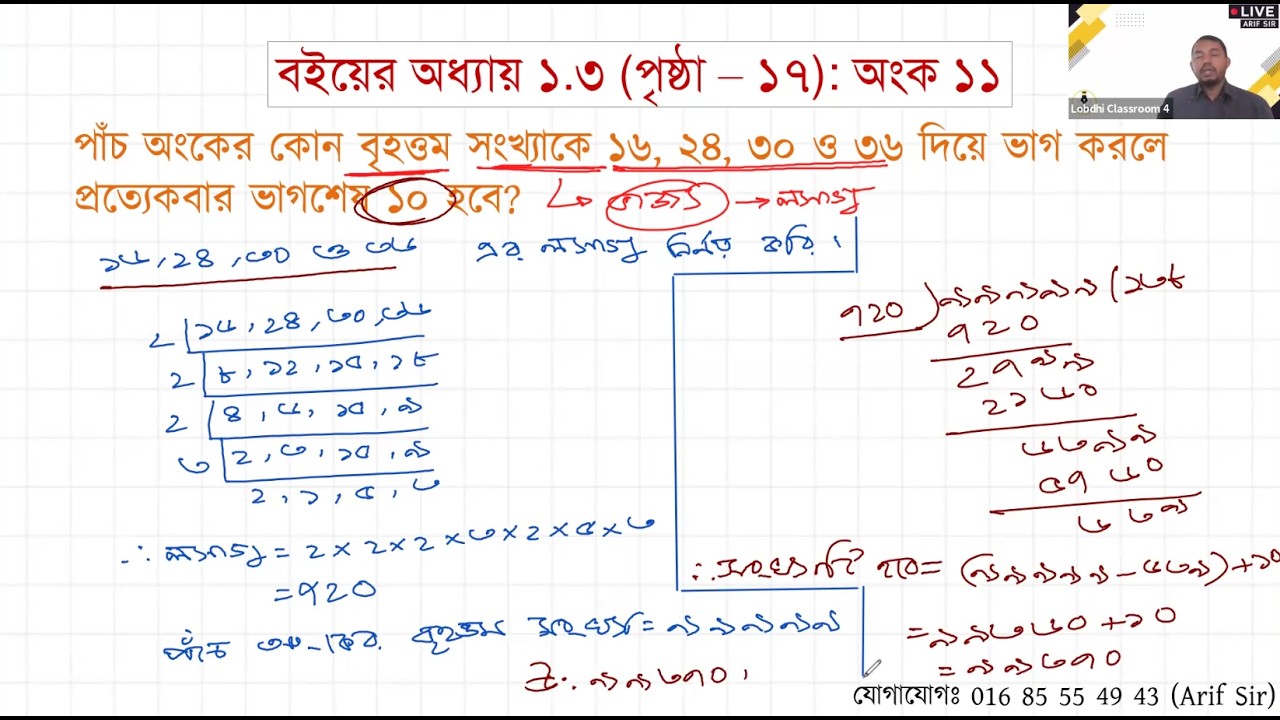 LIVE
ARIF SIR
Lobdhi Classroom 4
বইয়ের অধ্যায় ১.৩ (পৃষ্ঠা – ১৭): অংক ১১
পাঁচ অংকের কোন বৃহত্তম সংখ্যাকে ১৬, ২৪, ৩০ ও ৩৬ দিয়ে ভাগ করলে
প্রত্যেকবার ভাগশেষ ১০ হবে?
ভাজ্য → লসাগু
১৬, ২৪, ৩০ ও ৩৬ এর লসাগু নির্ণয় করি।
২ ১৬, ২৪, ৩০, ৩৬
২ ৮, ১২, ১৫, ১৮
২ ৪, ৬, ১৫, ৯
৩ ২, ৩, ১৫, ৯
২, ১, ৫, ৩
∴ লসাগু = ২ × ২ × ২ × ৩ × ২ × ৫ × ৩
= ৭২০
পাঁচ অংকের বৃহত্তম সংখ্যা = ৯৯৯৯৯
৭২০ ) ৯৯৯৯৯ ( ১৩৮
৭২০
২৭৯৯
২১৬০
৬৩৯৯
৫৭৬০
৬৩৯
∴ সংখ্যাটি হবে = (৯৯৯৯৯ – ৬৩৯) + ১০
= ৯৯৩৬০ + ১০
= ৯৯৩৭০
উ: ৯৯৩৭০।
যোগাযোগঃ 016 85 55 49 43 (Arif Sir)